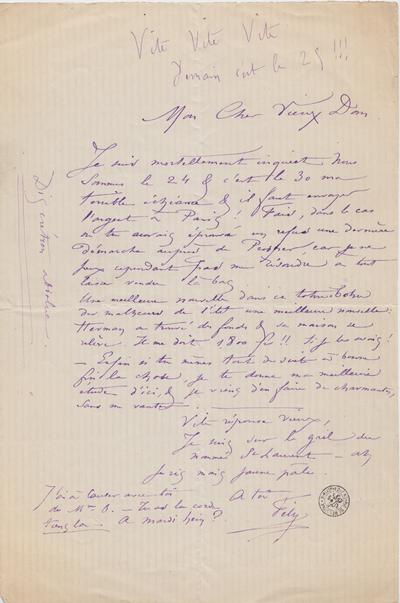 Vite Vite Vite
demain est le 25 !!!
Mon Cher Vieux Dom
Je suis mortellement inquiet. Nous
sommes le 24 & c'est le 30 ma
terrible échéance & il faut envoyer
l'argent à Paris ! Fais, dans le cas
où tu aurais éprouvé un refus une dernière
démarche auprès de Prosper car je ne
peux cependant pas me résoudre à tout
laisser vendre là bas
Une meilleure nouvelle dans ce tohu bohu
des malheurs de l'été une meilleure nouvelle :
Herman a trouvé des fonds & sa maison se
relève. Il me doit 1800 fr !! si je les avais !
– Enfin si tu mènes tout de suite à bonne
fin la chose je te donne ma meilleure
étude d'ici, & je viens d'en faire de charmantes,
sans me vanter
Vite réponse vieux,
Je suis sur le gril du
nommé St Laurent –
Je ris mais jaune pâle.
A toi
Fély
J'ai à causer avec toi
de Mme B. –
A mardi hein ?
Discrétion absolue.